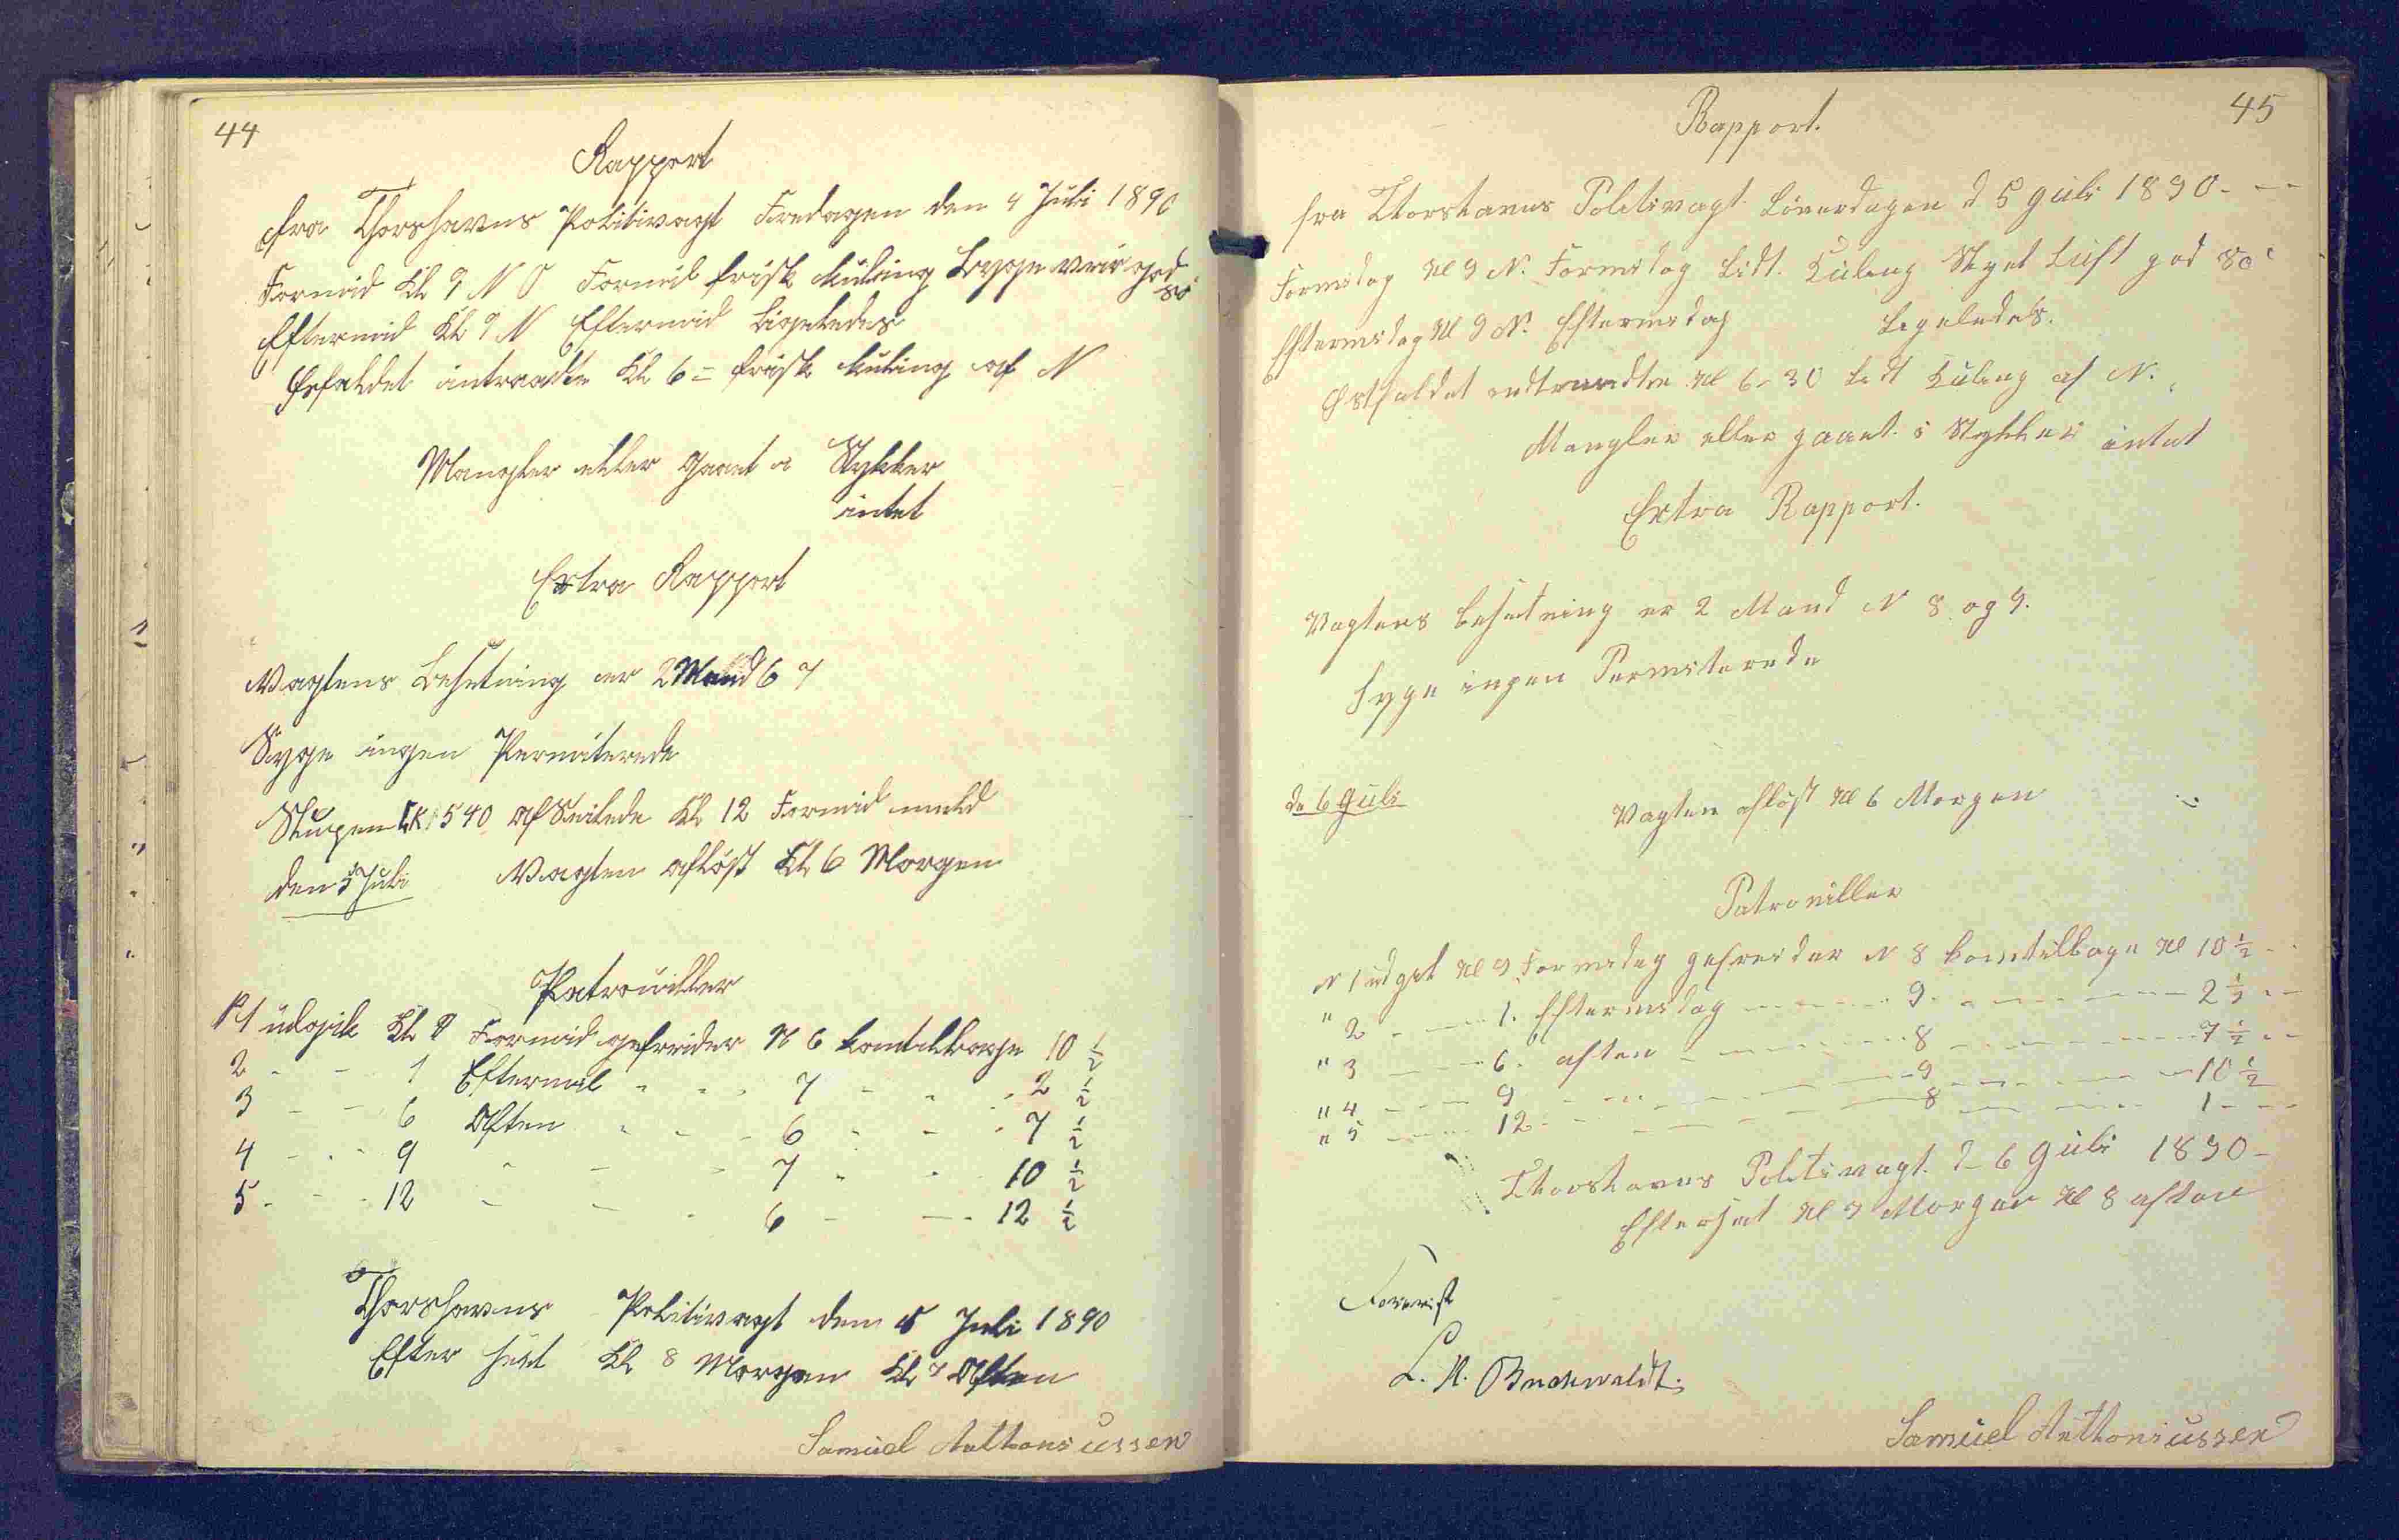 44
Rapport
fra Thorshavns Politivagt Fredagen den 4 Juli 1890
Formid Kl 9 N O Formid frisk Kuling Bygge veir god
80
Eftermid Kl 9 N Eftermid Ligeledes
Østfaldet intraadte Kl 6 = frisk Kuling af N
Mangler eller gaaet i Stykker
intet
Extra Rapport
Vagtens Besetning er 2 Mand 6 7
Syge ingen Permiterede
Slupen LK 540 af Seilede Kl 12 Formid
den 5 Juli Vagten afløst Kl 6 Morgen
Patrouiller
N 1 udgik Kl 9 Formid gefreider N 6 komtilbage 10 ½
2 - - 1 Eftermid - - - 7 - - - 2 ½
3 - - 6 Aften - - - 6 - - - 7 ½
4 - - 9 - - - 7 - - 10 ½
5 - - 12 - - - 6 - - 12 ½
Thorshavns Politivagt den 5 Juli 1890
Efter seet Kl 8 Morgen Kl 7 Aften
Samuel Anthoniussen
45
Rapport.
fra Thorshavns Politivagt Löverdagen d 5 Juli 1890 - --
Formidag Kl 9 N. Formidag Lidt. Kuling Skyet Luft god 80
Eftermidag Kl 9 N. Eftermidag Ligeledes.
Østfaldet indtraadte Kl 6-30 Lidt Kuling af N.
Mangler eller gaaet i Stykker intet
Extra Rapport.
Vagtens besetning er 2 Mand N 8 og 9.
Syge ingen Permiterede
d. 6 Juli Vagten afløst Kl 6 Morgen
Patrouiller
N 1 udgik Kl 9 Formidag gefreider N 8 komtilbage Kl 10 ½
" 2 - - 1. Eftermidag - - - 9. - - - 2 ½ --
" 3 - - 6. aften - - - 8 - - - 7 ½ --
" 4 - - 9 - - - 9 - - - 10 ½
" 5 - - 12 - - - 8 - - - 1 - --
Thorshavns Politivagt. d 6 Juli 1890 -
Efterseet Kl 7 Morgen Kl 8 aften
Forevist
L. H. Buchwaldt.
Samuel Anthoniussen